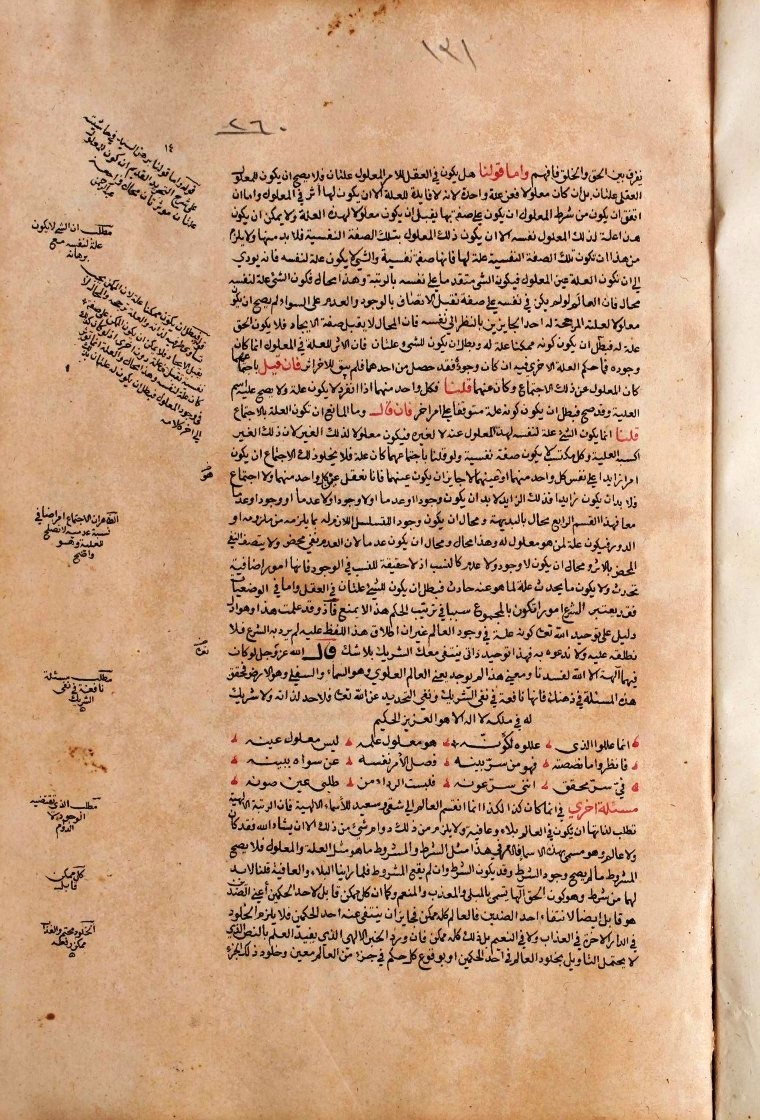 ١٣١
٢٦٠
يفرق بين الحق والخلق فافهم واما قولنا هل يكون في العقل للامر المعلول علتان فلا يصح ان يكون للمعلول
العقلي علتان بل ان كان معلولا فعن علة واحدة لانه لا فايدة للعلة الا ان يكون لها أثر في المعلول واما ان
اتفق ان يكون من شرط المعلول ان يكون على صفة بها يقبل ان يكون معلولا لهذه العلة ولا يمكن ان يكون
هذا علة لذلك المعلول نفسه الا ان يكون ذلك المعلول بتلك الصفة النفسية فلا بد منها ولا يلزم
من هذا ان تكون تلك الصفة النفسية علة لها فانها صفة نفسية والشيء لا يكون علة لنفسه فانه يودي
الى ان تكون العلة عين المعلول فيكون الشيء متقدما على نفسه بالرتبة وهذا محال فكون الشيء علة لنفسه
محال فان العالم لو لم يكن في نفسه على صفة تقبل الاتصاف بالوجود والعدم على السواء لم يصح ان يكون
معلولا لعلته المرجحة له احد الجايزين بالنظر الى نفسه فان المحال لا يقبل صفة الايجاد فلا يكون الحق
علة له فبطل ان يكون كونه ممكنا علة له وبطل ان يكون للشيء علتان فان الاثر للعلة في المعلول انما كان
وجوده فما حكم العلة الاخرى فيه ان كان وجوده فقد حصل من احدهما فلم يبق للاخر اثر فان قيل باجتماعهما
كان المعلول عن ذلك الاجتماع وكان عنهما قلنا فكل واحد منهما اذا انفرد لا يكون علة ولا يصح عليه اسم
العلية وقد صح فبطل ان يكون كونه علة متوقفا على امر اخر فان قال وما المانع ان تكون العلة بالاجتماع
قلنا انما يكون الشيء علة لنفسه لهذا المعلول عنه لا لغيره فيكون معلولا لذلك الغير لان ذلك الغير
اكسبه العلية وكل مكتسب يكون صفة نفسية ولو قلنا باجتماعهما كان علة فلا يخلو ذلك الاجتماع ان يكون
امرا زايدا على نفس كل واحد منهما او عينهما لا جايز ان يكون عينهما فانا نعقل عين كل واحد منهما ولا اجتماع
فلا بد ان يكون زايدا فذلك الزايد لا بد ان يكون وجودا او عدما او لا وجود ولا عدما او وجودا وعدما
معا فهذا القسم الرابع محال بالبديهة ومحال ان يكون وجودا للتسلسل اللازم له بما يلزمه من ملزومه او
الدور فيكون علة لمن هو معلول له وهذا محال ومحال ان يكون عدما لان العدم نفي محض ولا يتصف النفي
المحض بالاثر ومحال ان يكون لا وجود ولا عدم كالنسب اذ لا حقيقة للنسب في الوجود فانها امور اضافية
تحدث ولا يكون ما يحدث علة لما هو عنه حادث فبطل ان يكون للشيء علتان في العقل واما في الوضعيات
فقد يعتبر الشرع امورا تكون بالمجموع سببا في ترتيب الحكم هذا لا يمنع فاذ وقد علمت هذا وهو ادل
دليل على توحيد الله تعالى كونه علة في وجود العالم غير ان اطلاق هذا اللفظ عليه لم يرد به الشرع فلا
نطلقه عليه ولا ندعوه به فهذا توحيد ذاتي ينتفي معه الشريك بلا شك قال الله عز وجل لو كان
فيهما آلهة الا الله لفسدتا ومعنى هذا لم يوجد يعني العالم العلوي وهو السماء والسفلي وهو الارض فحقق
هذه المسئلة في ذهنك فانها نافعة في نفي الشريك ونفي التحديد عن الله تعالى فلا حد لذاته ولا شريك
له في ملكه لا اله الا هو العزيز الحكيم
انما عللوا الذي عللوه لكونه هو معلول علمه ليس معلول عينه
فانظروا ما نصصته فهو من سر بينه فصل الامر نفسه عن سواه ببينه
في سر تحقق انني سر عونه فلبست الرداء من طلبي عين صونه
مسئلة اخرى في انما كان كذا لكذا انما انقسم العالم الى شقي وسعيد للأسماء الالهية فان الرتبة الالهية
تطلب لذاتها ان يكون في العالم بلاء وعافية ولا يلزم من ذلك دوام شيء من ذلك الا ان يشاء الله فقد كان
ولا عالم وهو مسمى بهذه الاسماء فالامر في هذا مثل الشرط والمشروط ما هو مثل العلة والمعلول فلا يصح
المشروط ما لم يصح وجود الشرط وقد يكون الشرط وان لم يقع المشروط فلما راينا البلاء والعافية قلنا لابد
لها من شرط وهو كون الحق الها يسمى بالمبلي والمعذب والمنعم وكما ان كل ممكن قابل لاحد الحكمين أعني الضدين
هو قابل ايضا لانتفاء احد الضدين فالعالم كله ممكن فجايز ان ينتفي عنه احد الحكمين فلا يلزم الخلود
في الدار الاخرة في العذاب ولا في النعيم بل ذلك كله ممكن فان ورد الخبر الالهي الذي يفيد العلم بالنص الذي
لا يحتمل التاويل بخلود العالم في احد الحكمين او بوقوع كل حكم في جزء من العالم معين وخلود ذلك الجزء
مطلب ان الشيء لا يكون
علة لنفسه مع
برهانه
الظاهر ان الاجتماع امر اضافي
نسبة عدمية لا تصلح
للعلية وهو
واضح
مطلب مسئلة
نافعة في نفي
الشريك
مطلب الذي تقتضيه
الوجود لا
الدوم
كل ممكن
قابل
الخلود محتم والعذاب
ممكن